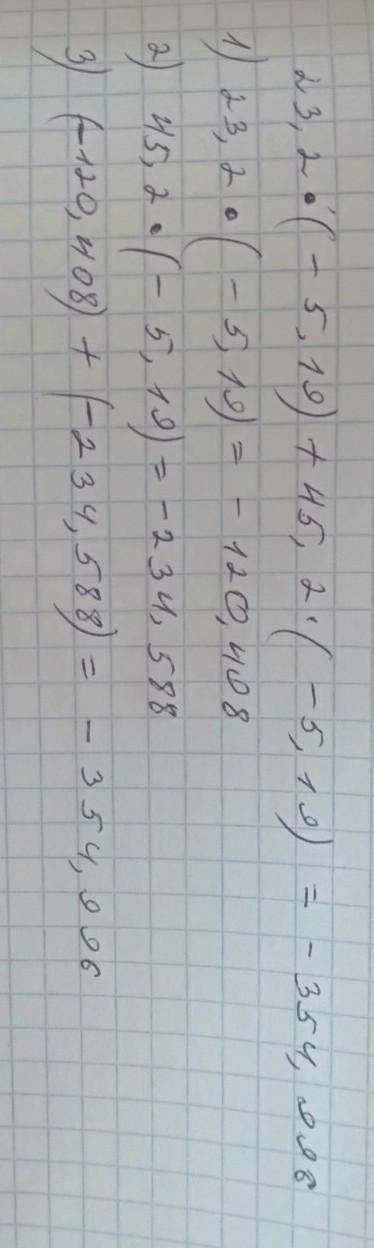 23,2 · (-5,19) + 45,2 · (-5,19) = -354,996
1) 23,2 · (-5,19) = -120,408
2) 45,2 · (-5,19) = -234,588
3) (-120,408) + (-234,588) = -354,996